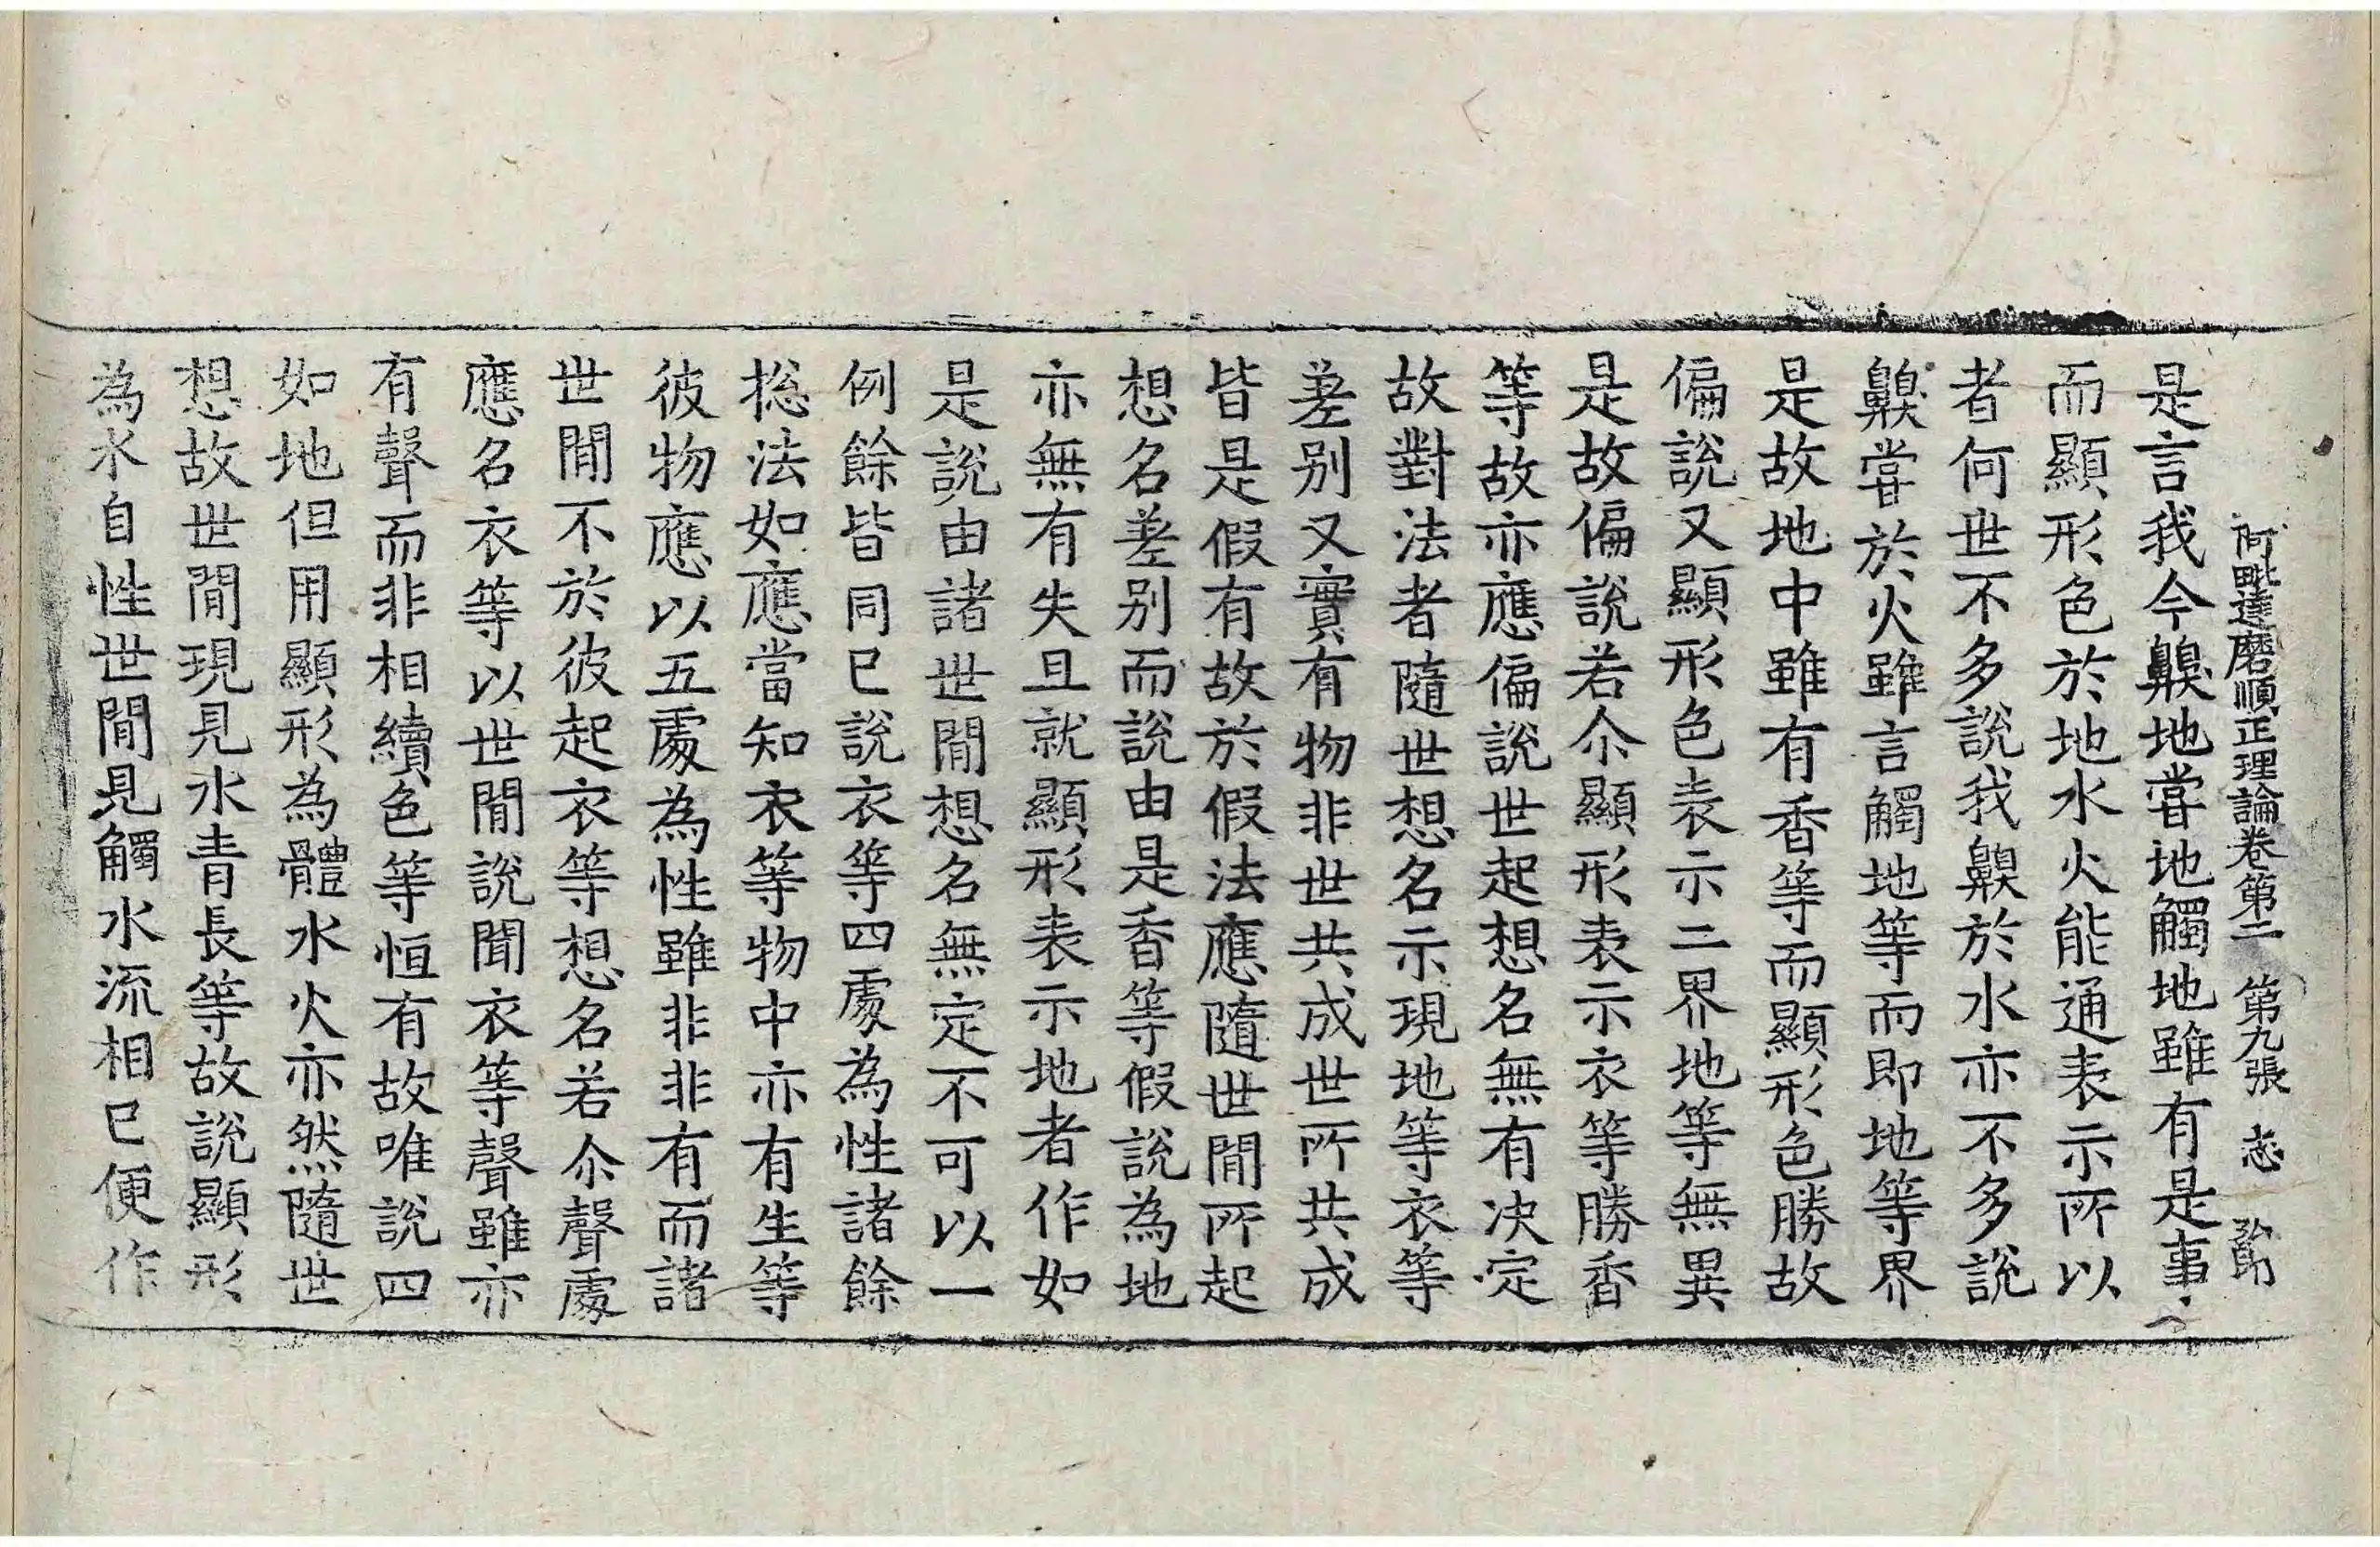 阿毗達磨順正理論卷第二 第九張 志
是言我今齅地嘗地觸地雖有是事
而顯形色於地水火能通表示所以
者何世不多說我齅於水亦不多說
齅嘗於火雖言觸地等而即地等界
是故地中雖有香等而顯形色勝故
偏說又顯形色表示二界地等無異
是故偏說若尒顯形表示衣等勝香
等故亦應偏說世起想名無有决定
故對法者隨世想名示現地等衣等
差别又實有物非世共成世所共成
皆是假有故於假法應隨世間所起
想名差别而說由是香等假說為地
亦無有失且就顯形表示地者作如
是說由諸世間想名無定不可以一
例餘皆同已說衣等四處為性諸餘
捴法如應當知衣等物中亦有生等
彼物應以五處為性雖非非有而諸
世間不於彼起衣等想名若尒聲處
應名衣等以世間說聞衣等聲雖亦
有聲而非相續色等恒有故唯說四
如地但用顯形為體水火亦然隨世
想故世間現見水青長等故說顯形
為水自性世間見觸水流相已便作